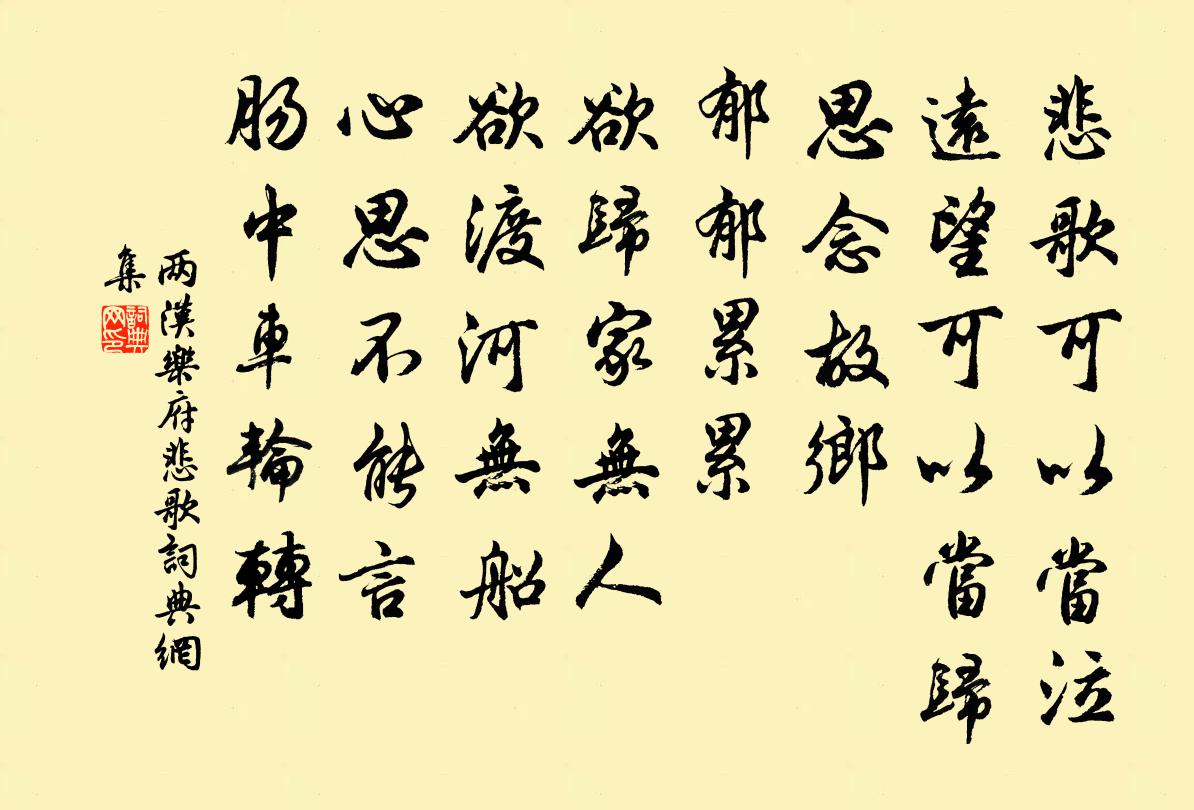 悲歌可以當泣
遠望可以當歸
思念故鄉
郁郁累累
欲歸家無人
欲渡河無船
心思不能言
腸中車輪轉
两漢樂府悲歌詞典網
集
詞典
网印